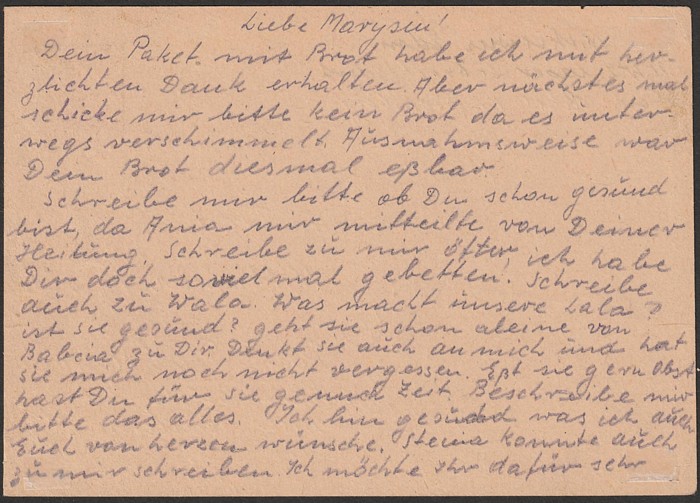 Liebe Marysiu!
Dein Paket mit Brot habe ich mit her-
zlichten Dank erhalten. Aber nächstes mal
schicke mir bitte kein Brot da es unter-
wegs verschimmelt. Ausnahmsweise war
Dein Brot diesmal eßbar.
Schreibe mir bitte ob Du schon gesund
bist, da Ania mir mitteilte von Deiner
Heilung. Schreibe zu mir öfter, ich habe
Dir doch soviel mal gebetten! Schreibe
auch zu Wala. Was macht unsere Lala?
ist sie gesund? geht sie schon aleine von
Babcia zu Dir. Denkt sie auch an mich und hat
sie mich noch nicht vergessen. Eßt sie gern Obst
hast Du für sie genuch Zeit. Beschreibe mir
bitte das alles. Ich bin gesund was ich auch
Euch von herzen wünsche. Stena konnte auch
zu mir schreiben. Ich möchte Ihr dafür sehr